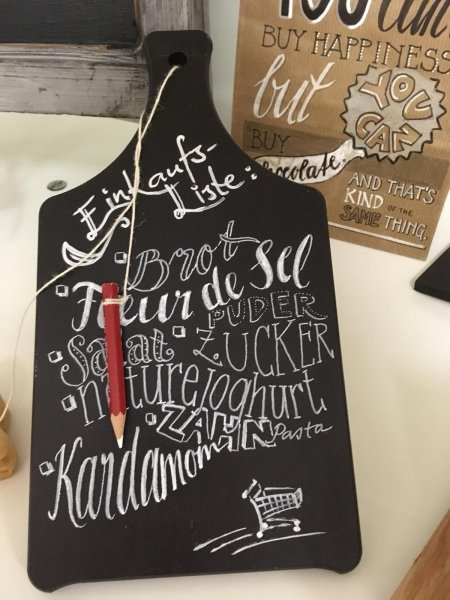 Einkaufs-
Liste:
Brot
Fleur de Sel
PUDER
Salat ZUCKER
naturejoghurt
ZAHN Pasta
Kardamom
YOU CAN'T
BUY HAPPINESS
but
YOU
CAN
BUY
chocolate.
AND THAT'S
KIND OF THE
SAME THING.